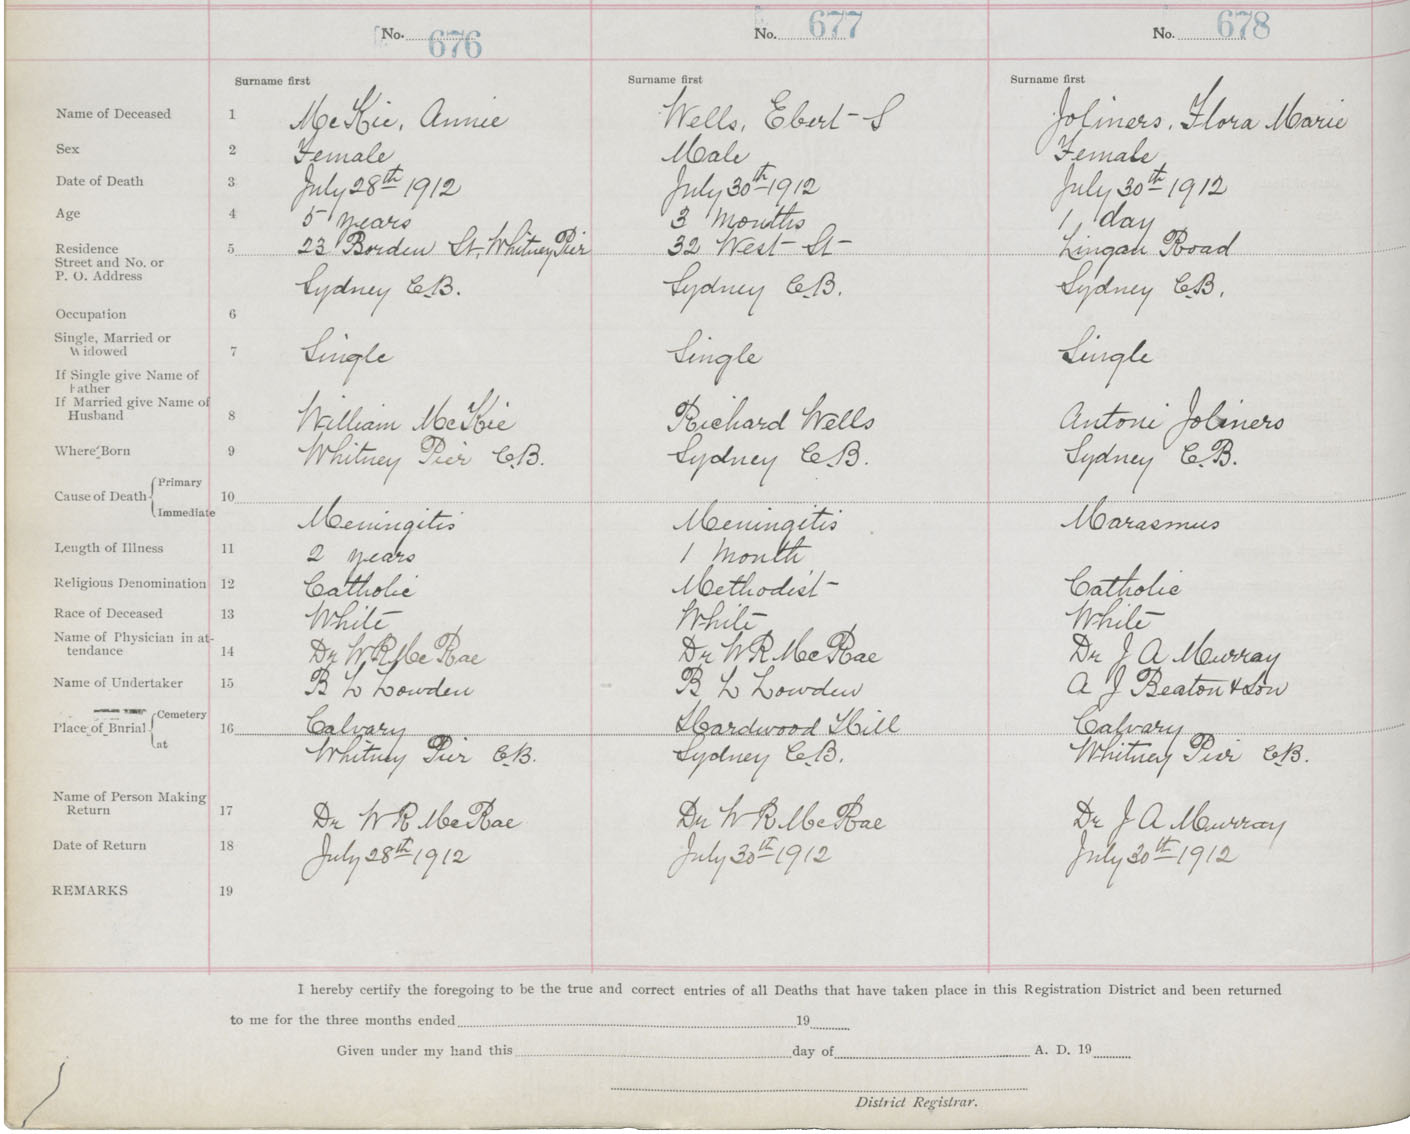 No. 676 No. 677 No. 678
Surname first Surname first Surname first
Name of Deceased 1 McKie, Annie Wells, Ebert S Joliners, Flora Marie
Sex 2 Female Male Female
Date of Death 3 July 28th 1912 July 30th 1912 July 30th 1912
Age 4 5 years 3 Months 1 day
Residence 5 23 Borden St, Whitney Pier 32 West St Lingan Road
Street and No. or
P. O. Address Sydney C.B. Sydney C.B. Sydney C.B.
Occupation 6
Single, Married or
Widowed 7 Single Single Single
If Single give Name of
Father
If Married give Name of
Husband 8 William McKie Richard Wells Antoni Joliners
Where Born 9 Whitney Pier C.B. Sydney C.B. Sydney C.B.
Primary
Cause of Death 10
Immediate Meningitis Meningitis Marasmus
Length of Illness 11 2 years 1 Month
Religious Denomination 12 Catholic Methodist Catholic
Race of Deceased 13 White White White
Name of Physician in at-
tendance 14 Dr W R McRae Dr W R McRae Dr J A Murray
Name of Undertaker 15 B L Lowden B L Lowden A J Beaton & Son
Cemetery
Place of Burial 16 Calvary Hardwood Hill Calvary
at Whitney Pier C.B. Sydney C.B. Whitney Pier C.B.
Name of Person Making
Return 17 Dr W R McRae Dr W R McRae Dr J A Murray
Date of Return 18 July 28th 1912 July 30th 1912 July 30th 1912
REMARKS 19
I hereby certify the foregoing to be the true and correct entries of all Deaths that have taken place in this Registration District and been returned
to me for the three months ended 19
Given under my hand this day of A. D. 19
District Registrar.